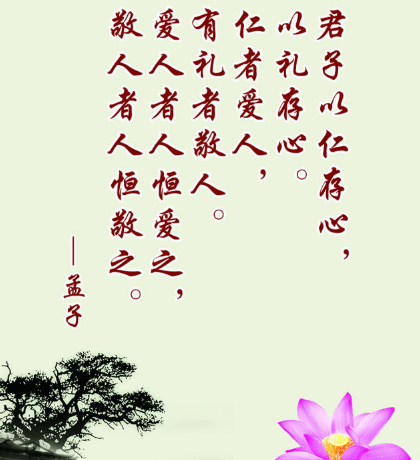 君子以仁存心，
以礼存心。
仁者爱人，
有礼者敬人。
爱人者人恒爱之，
敬人者人恒敬之。
—孟子